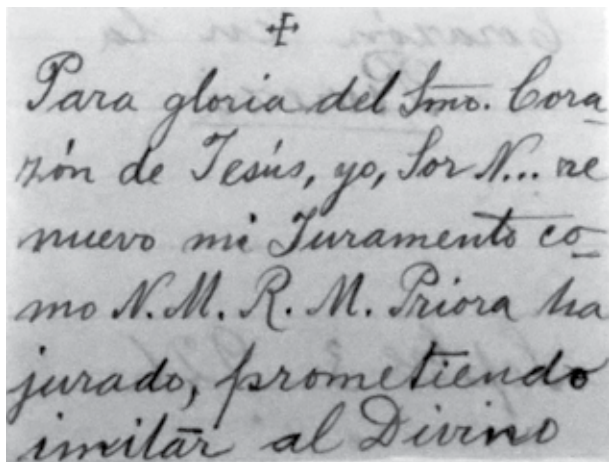 Para gloria del Smo. Cora
zón de Jesús, yo, Sor N... re
nuevo mi Juramento co
mo N. M. R. M. Priora ha
jurado, prometiendo
imitar al Divino